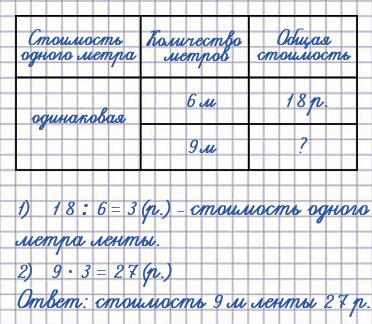 Стоимость одного метра
Количество метров
Общая стоимость
одинаковая
6 м
18 р.
9 м
?
1) 18 : 6 = 3 (р.) – стоимость одного
метра ленты.
2) 9 · 3 = 27 (р.)
Ответ: стоимость 9 м ленты 27 р.